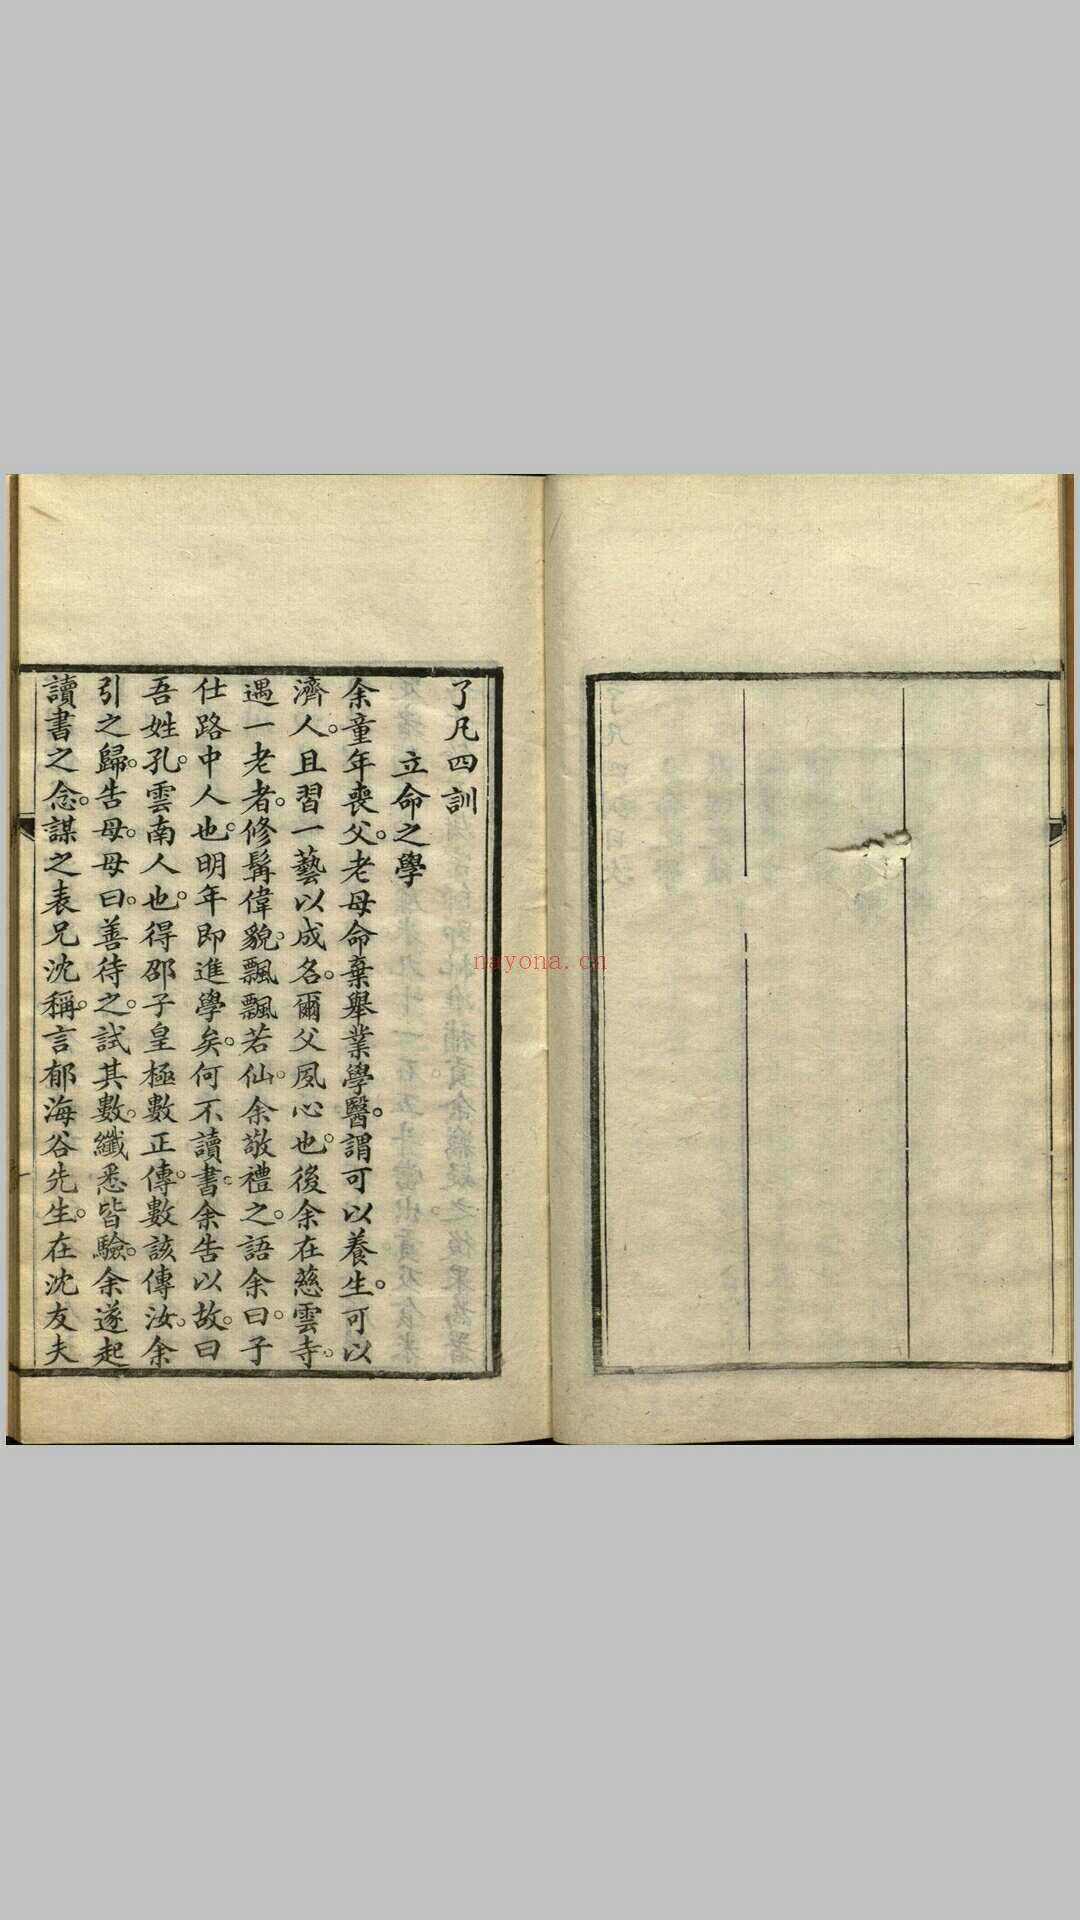 了凡四訓
立命之學
余童年喪父。老母命棄舉業學醫。謂可以養生。可以
濟人。且習一藝以成名。爾父夙心也。後余在慈雲寺。
遇一老者。修髯偉貌。飄飄若仙。余敬禮之。語余曰。子
仕路中人也。明年即進學矣。何不讀書。余告以故。曰
吾姓孔。雲南人也。得邵子皇極數正傳。數該傳汝。余
引之歸。告母。母曰。善待之。試其數。纖悉皆驗。余遂起
讀書之念。謀之表兄沈稱。言郁海谷先生。在沈友夫
nayona.cn